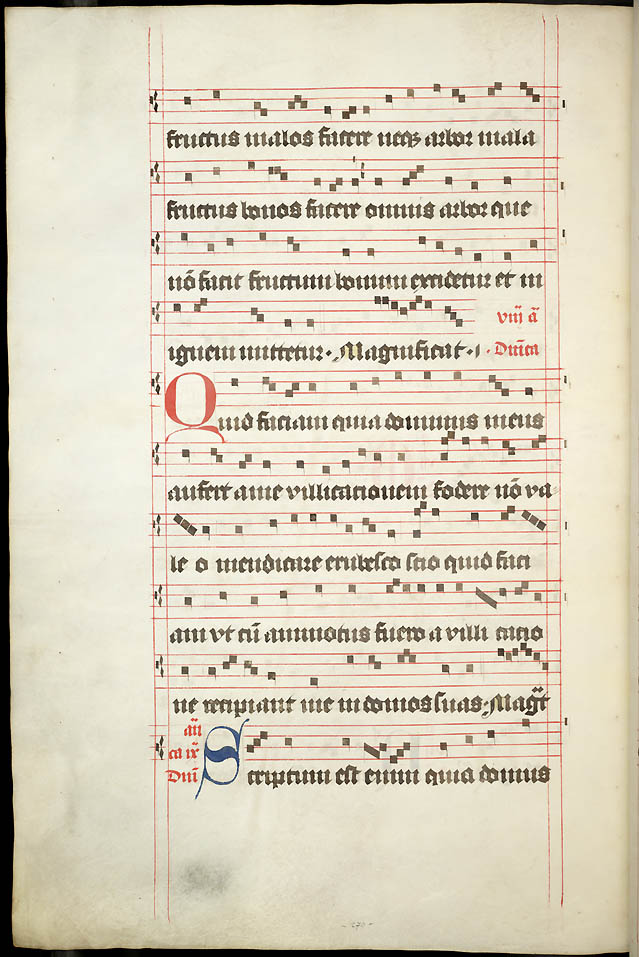 fructus malos facere neqꝫ arbor mala
fructus bonos facere omnis arbor que
nō facit fructum bonum excidetur et in
ignem mittetur. Magnificat.
viij ā
Dm̄ica
Quid faciam quia dominus meus
aufert a me villicacionem fodere nō va
le o mendicare erubesco scio quid faci
am vt cū ammotus fuero a villi cacio
ne recipiant me in domos suas. Magt̄
an̄
ca ix
Dm̄i
Scriptum est enim quia domus